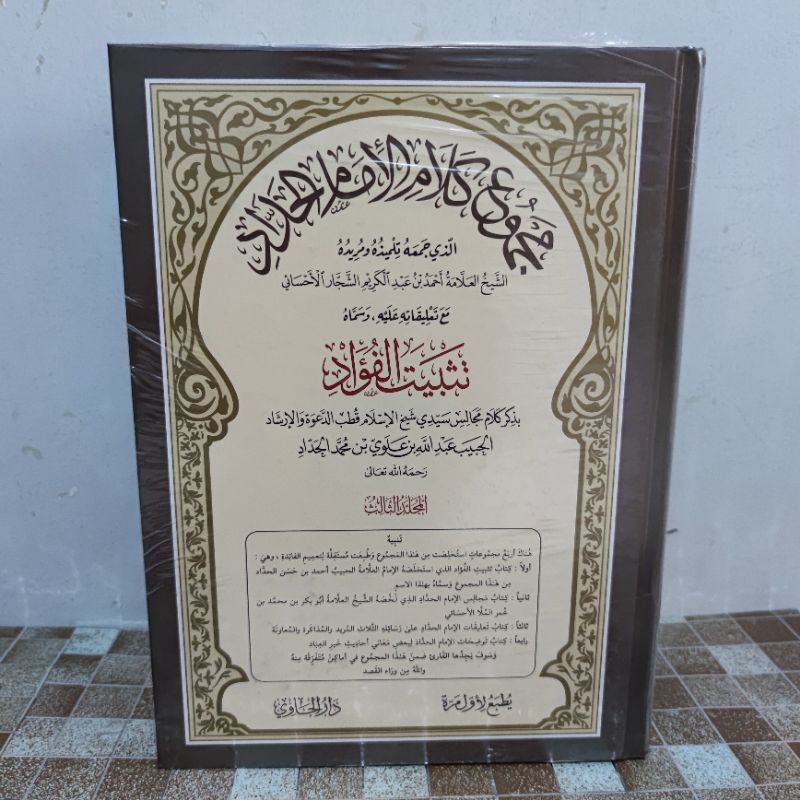 مجموع كلام الإمام الحداد
الَّذِي جَمَعَهُ تِلْمِيذُهُ وَمُرِيدُهُ
الشَّيْخُ العَلَّامَةُ أَحْمَدُ بْنُ عَبْدِ الْكَرِيْمِ الشَّجَّار الْأَحْسَائِي
مَعَ تَعْلِيقَاتِهِ عَلَيْهِ، وَسَمَّاهُ
تثبيت الفؤاد
بذكر كلام مجالس سيدي شيخ الإسلام قطب الدعوة والإرشاد
الحبيب عبد الله بن علوي بن محمد الحداد
رحمه الله تعالى
المجلد الثالث
تنبيه
هناك أربع مجموعات استخلصت من هذا المجموع وطبعت مستقلة لتعميم الفائدة ، وهي :
أولاً : كتاب تثبيت الفؤاد الذي استخلصه الإمام العلامة الحبيب أحمد بن حسن الحداد
من هذا المجموع وسماه بهذا الاسم
ثانياً : كتاب مجالس الإمام الحداد الذي لخصه الشيخ العلامة أبو بكر بن محمد بن
عمر الملا الأحسائي
ثالثاً : كتاب تعليقات الإمام الحداد على رسائله الثلاث المريد والمذاكرة والمعاونة
رابعاً : كتاب توضيحات الإمام الحداد لبعض معاني أحاديث خير العباد
وسوف يجدها القارئ ضمن هذا المجموع في أماكن متفرقة منه
والله من وراء القصد
يُطبَعُ لأوّل مَرّة
دار الحاوي